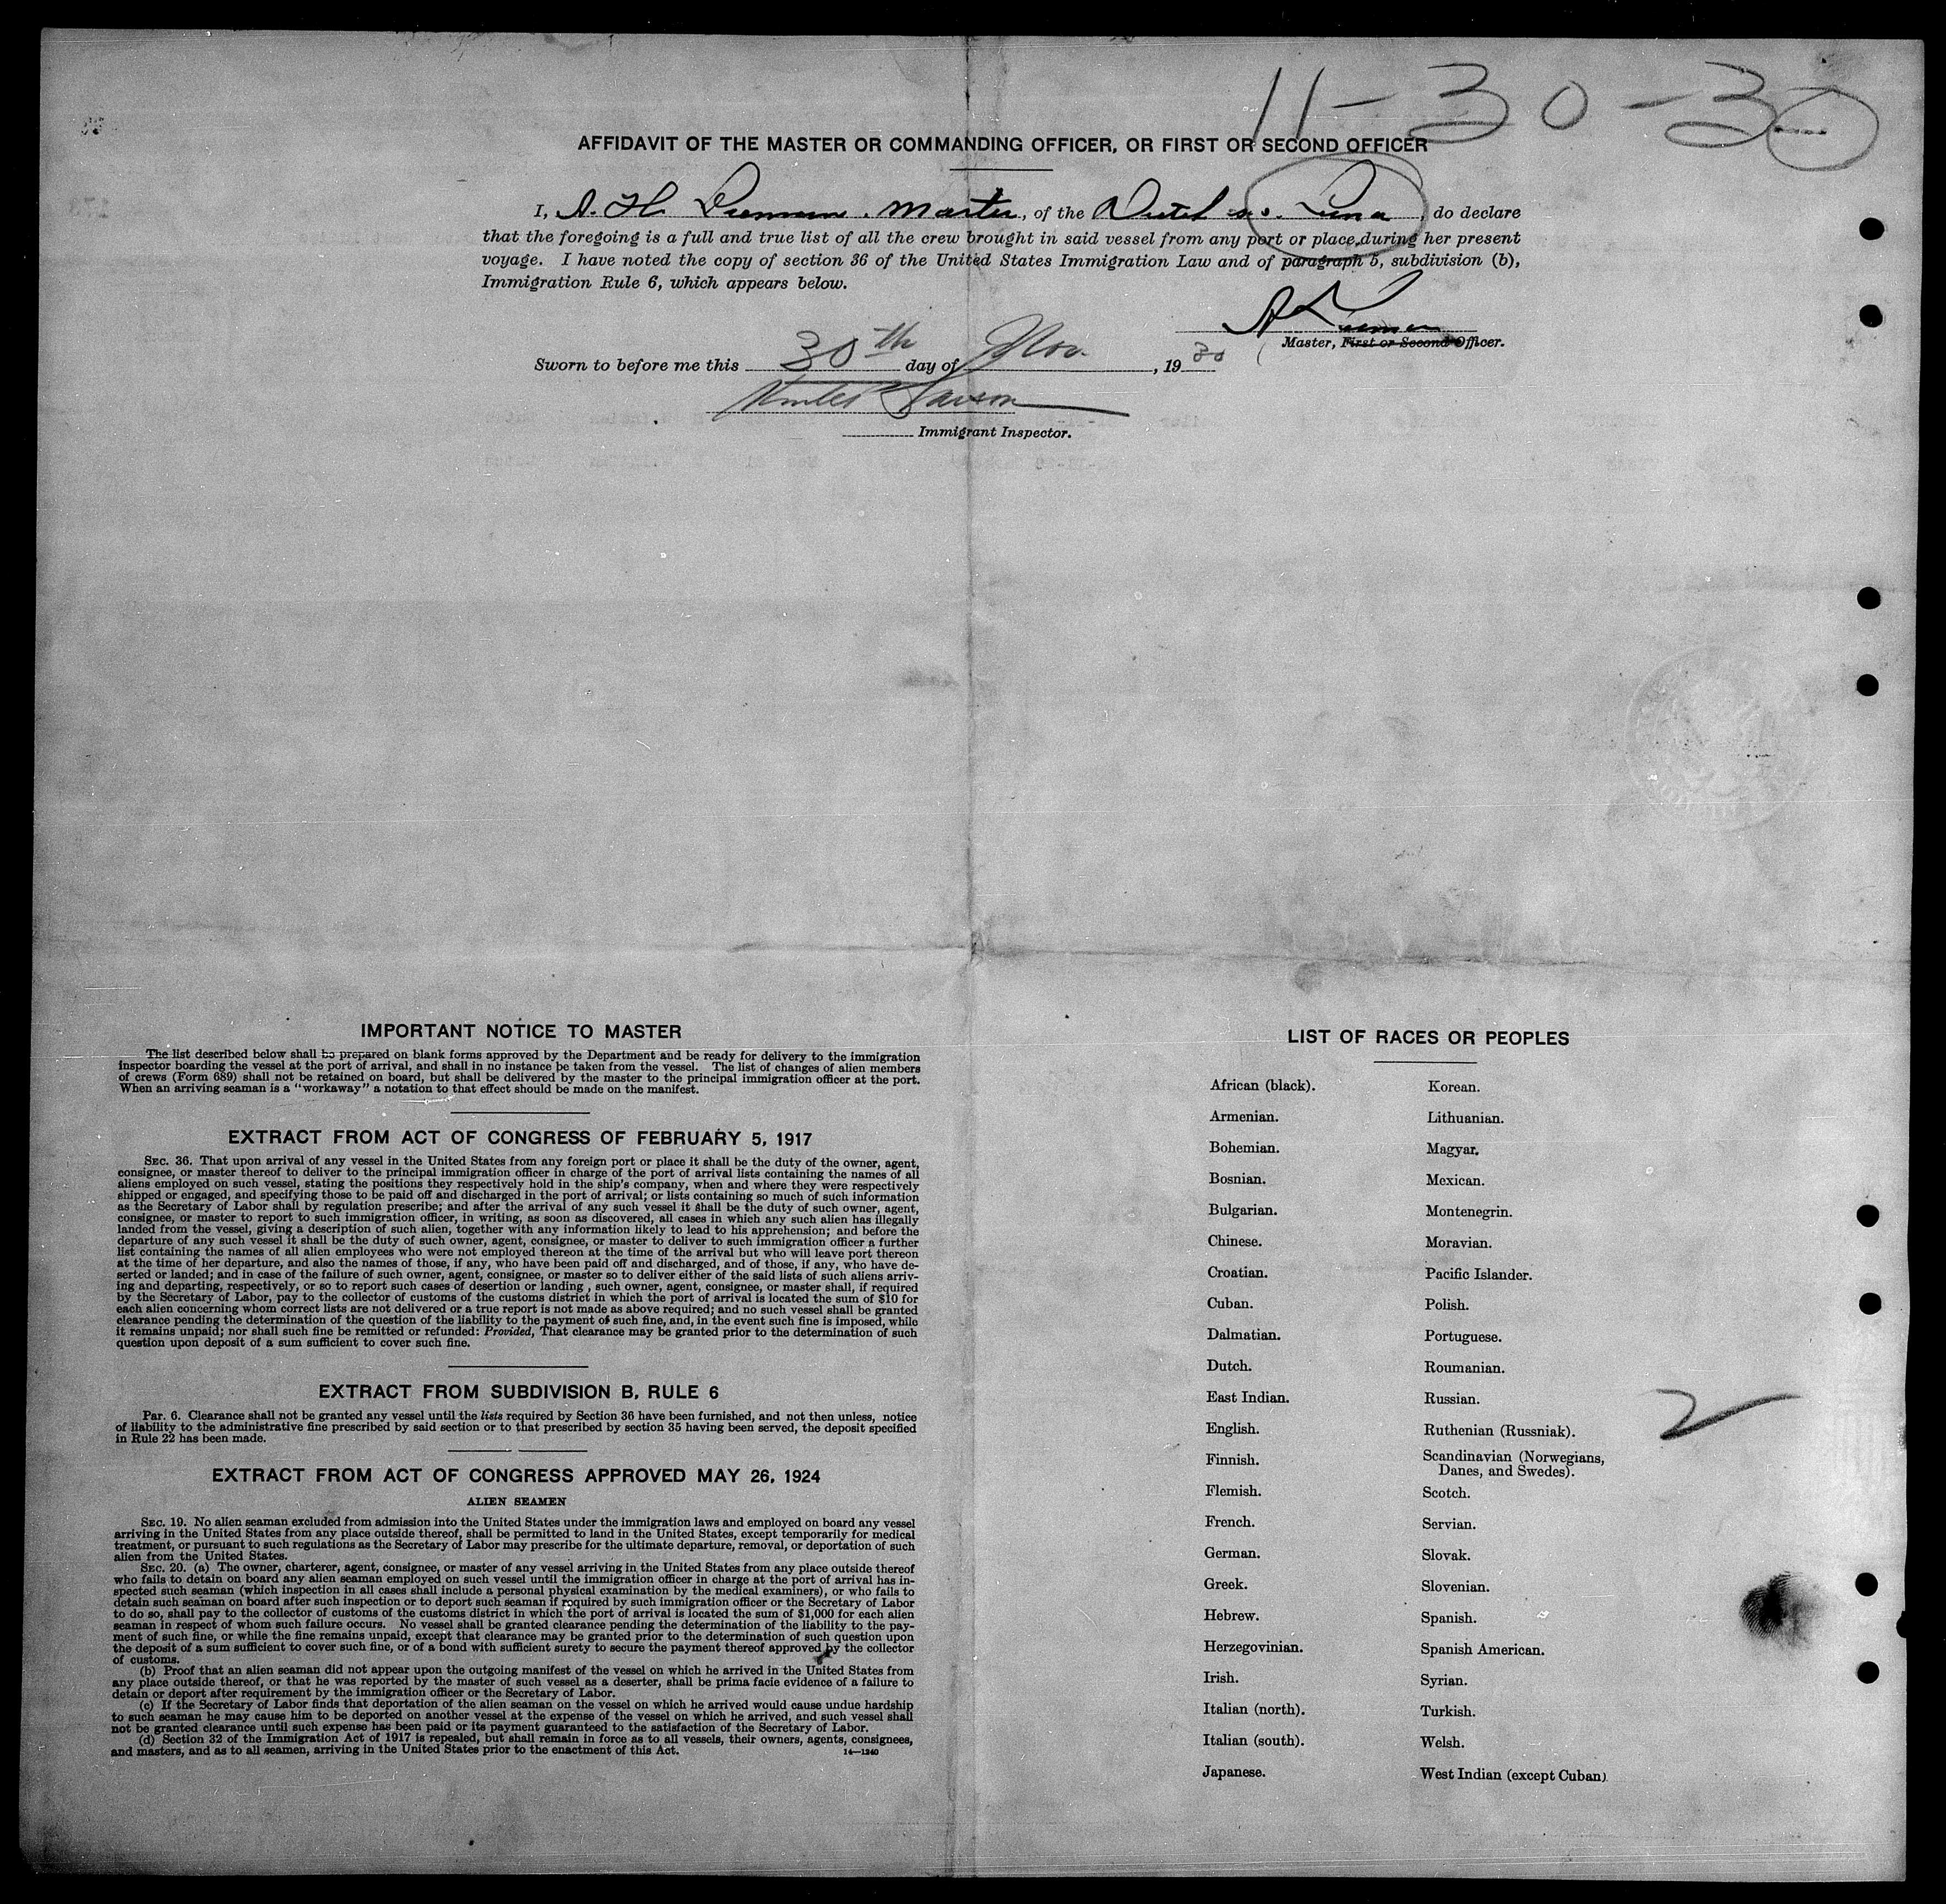 11-30-30
AFFIDAVIT OF THE MASTER OR COMMANDING OFFICER, OR FIRST OR SECOND OFFICER
I, A. H. Master, of the Dutch s.s. Luna, do declare
that the foregoing is a full and true list of all the crew brought in said vessel from any port or place, during her present
voyage. I have noted the copy of section 36 of the United States Immigration Law and of paragraph 5, subdivision (b),
Immigration Rule 6, which appears below.
Master, First or Second Officer.
Sworn to before me this 30th day of Nov., 1930
Immigrant Inspector.
IMPORTANT NOTICE TO MASTER
The list described below shall be prepared on blank forms approved by the Department and be ready for delivery to the immigration
inspector boarding the vessel at the port of arrival, and shall in no instance be taken from the vessel. The list of changes of alien members
of crews (Form 689) shall not be retained on board, but shall be delivered by the master to the principal immigration officer at the port.
When an arriving seaman is a "workaway" a notation to that effect should be made on the manifest.
EXTRACT FROM ACT OF CONGRESS OF FEBRUARY 5, 1917
SEC. 36. That upon arrival of any vessel in the United States from any foreign port or place it shall be the duty of the owner, agent,
consignee, or master thereof to deliver to the principal immigration officer in charge of the port of arrival lists containing the names of all
aliens employed on such vessel, stating the positions they respectively hold in the ship's company, when and where they were respectively
shipped or engaged, and specifying those to be paid off and discharged in the port of arrival; or lists containing so much of such information
as the Secretary of Labor shall by regulation prescribe; and after the arrival of any such vessel it shall be the duty of such owner, agent,
consignee, or master to report to such immigration officer, in writing, as soon as discovered, all cases in which any such alien has illegally
landed from the vessel, giving a description of such alien, together with any information likely to lead to his apprehension; and before the
departure of any such vessel it shall be the duty of such owner, agent, consignee, or master to deliver to such immigration officer a further
list containing the names of all alien employees who were not employed thereon at the time of the arrival but who will leave port thereon
at the time of her departure, and also the names of those, if any, who have been paid off and discharged, and of those, if any, who have de-
serted or landed; and in case of the failure of such owner, agent, consignee, or master so to deliver either of the said lists of such aliens arriv-
ing and departing, respectively, or so to report such cases of desertion or landing , such owner, agent, consignee, or master shall, if required
by the Secretary of Labor, pay to the collector of customs of the customs district in which the port of arrival is located the sum of $10 for
each alien concerning whom correct lists are not delivered or a true report is not made as above required; and no such vessel shall be granted
clearance pending the determination of the question of the liability to the payment of such fine, and, in the event such fine is imposed, while
it remains unpaid; nor shall such fine be remitted or refunded: Provided, That clearance may be granted prior to the determination of such
question upon deposit of a sum sufficient to cover such fine.
EXTRACT FROM SUBDIVISION B, RULE 6
Par. 6. Clearance shall not be granted any vessel until the lists required by Section 36 have been furnished, and not then unless, notice
of liability to the administrative fine prescribed by said section or to that prescribed by section 35 having been served, the deposit specified
in Rule 22 has been made.
EXTRACT FROM ACT OF CONGRESS APPROVED MAY 26, 1924
ALIEN SEAMEN
SEC. 19. No alien seaman excluded from admission into the United States under the immigration laws and employed on board any vessel
arriving in the United States from any place outside thereof, shall be permitted to land in the United States, except temporarily for medical
treatment, or pursuant to such regulations as the Secretary of Labor may prescribe for the ultimate departure, removal, or deportation of such
alien from the United States.
SEC. 20. (a) The owner, charterer, agent, consignee, or master of any vessel arriving in the United States from any place outside thereof
who fails to detain on board any alien seaman employed on such vessel until the immigration officer in charge at the port of arrival has in-
spected such seaman (which inspection in all cases shall include a personal physical examination by the medical examiners), or who fails to
detain such seaman on board after such inspection or to deport such seaman if required by such immigration officer or the Secretary of Labor
to do so, shall pay to the collector of customs of the customs district in which the port of arrival is located the sum of $1,000 for each alien
seaman in respect of whom such failure occurs. No vessel shall be granted clearance pending the determination of the liability to the pay-
ment of such fine, or while the fine remains unpaid, except that clearance may be granted prior to the determination of such question upon
the deposit of a sum sufficient to cover such fine, or of a bond with sufficient surety to secure the payment thereof approved by the collector
of customs.
(b) Proof that an alien seaman did not appear upon the outgoing manifest of the vessel on which he arrived in the United States from
any place outside thereof, or that he was reported by the master of such vessel as a deserter, shall be prima facie evidence of a failure to
detain or deport after requirement by the immigration officer or the Secretary of Labor.
(c) If the Secretary of Labor finds that deportation of the alien seaman on the vessel on which he arrived would cause undue hardship
to such seaman he may cause him to be deported on another vessel at the expense of the vessel on which he arrived, and such vessel shall
not be granted clearance until such expense has been paid or its payment guaranteed to the satisfaction of the Secretary of Labor.
(d) Section 32 of the Immigration Act of 1917 is repealed, but shall remain in force as to all vessels, their owners, agents, consignees,
and masters, and as to all seamen, arriving in the United States prior to the enactment of this Act. 14—1240
LIST OF RACES OR PEOPLES
African (black). Korean.
Armenian. Lithuanian.
Bohemian. Magyar.
Bosnian. Mexican.
Bulgarian. Montenegrin.
Chinese. Moravian.
Croatian. Pacific Islander.
Cuban. Polish.
Dalmatian. Portuguese.
Dutch. Roumanian.
East Indian. Russian.
English. Ruthenian (Russniak).
Finnish. Scandinavian (Norwegians,
Danes, and Swedes).
Flemish. Scotch.
French. Servian.
German. Slovak.
Greek. Slovenian.
Hebrew. Spanish.
Herzegovinian. Spanish American.
Irish. Syrian.
Italian (north). Turkish.
Italian (south). Welsh.
Japanese. West Indian (except Cuban).
2